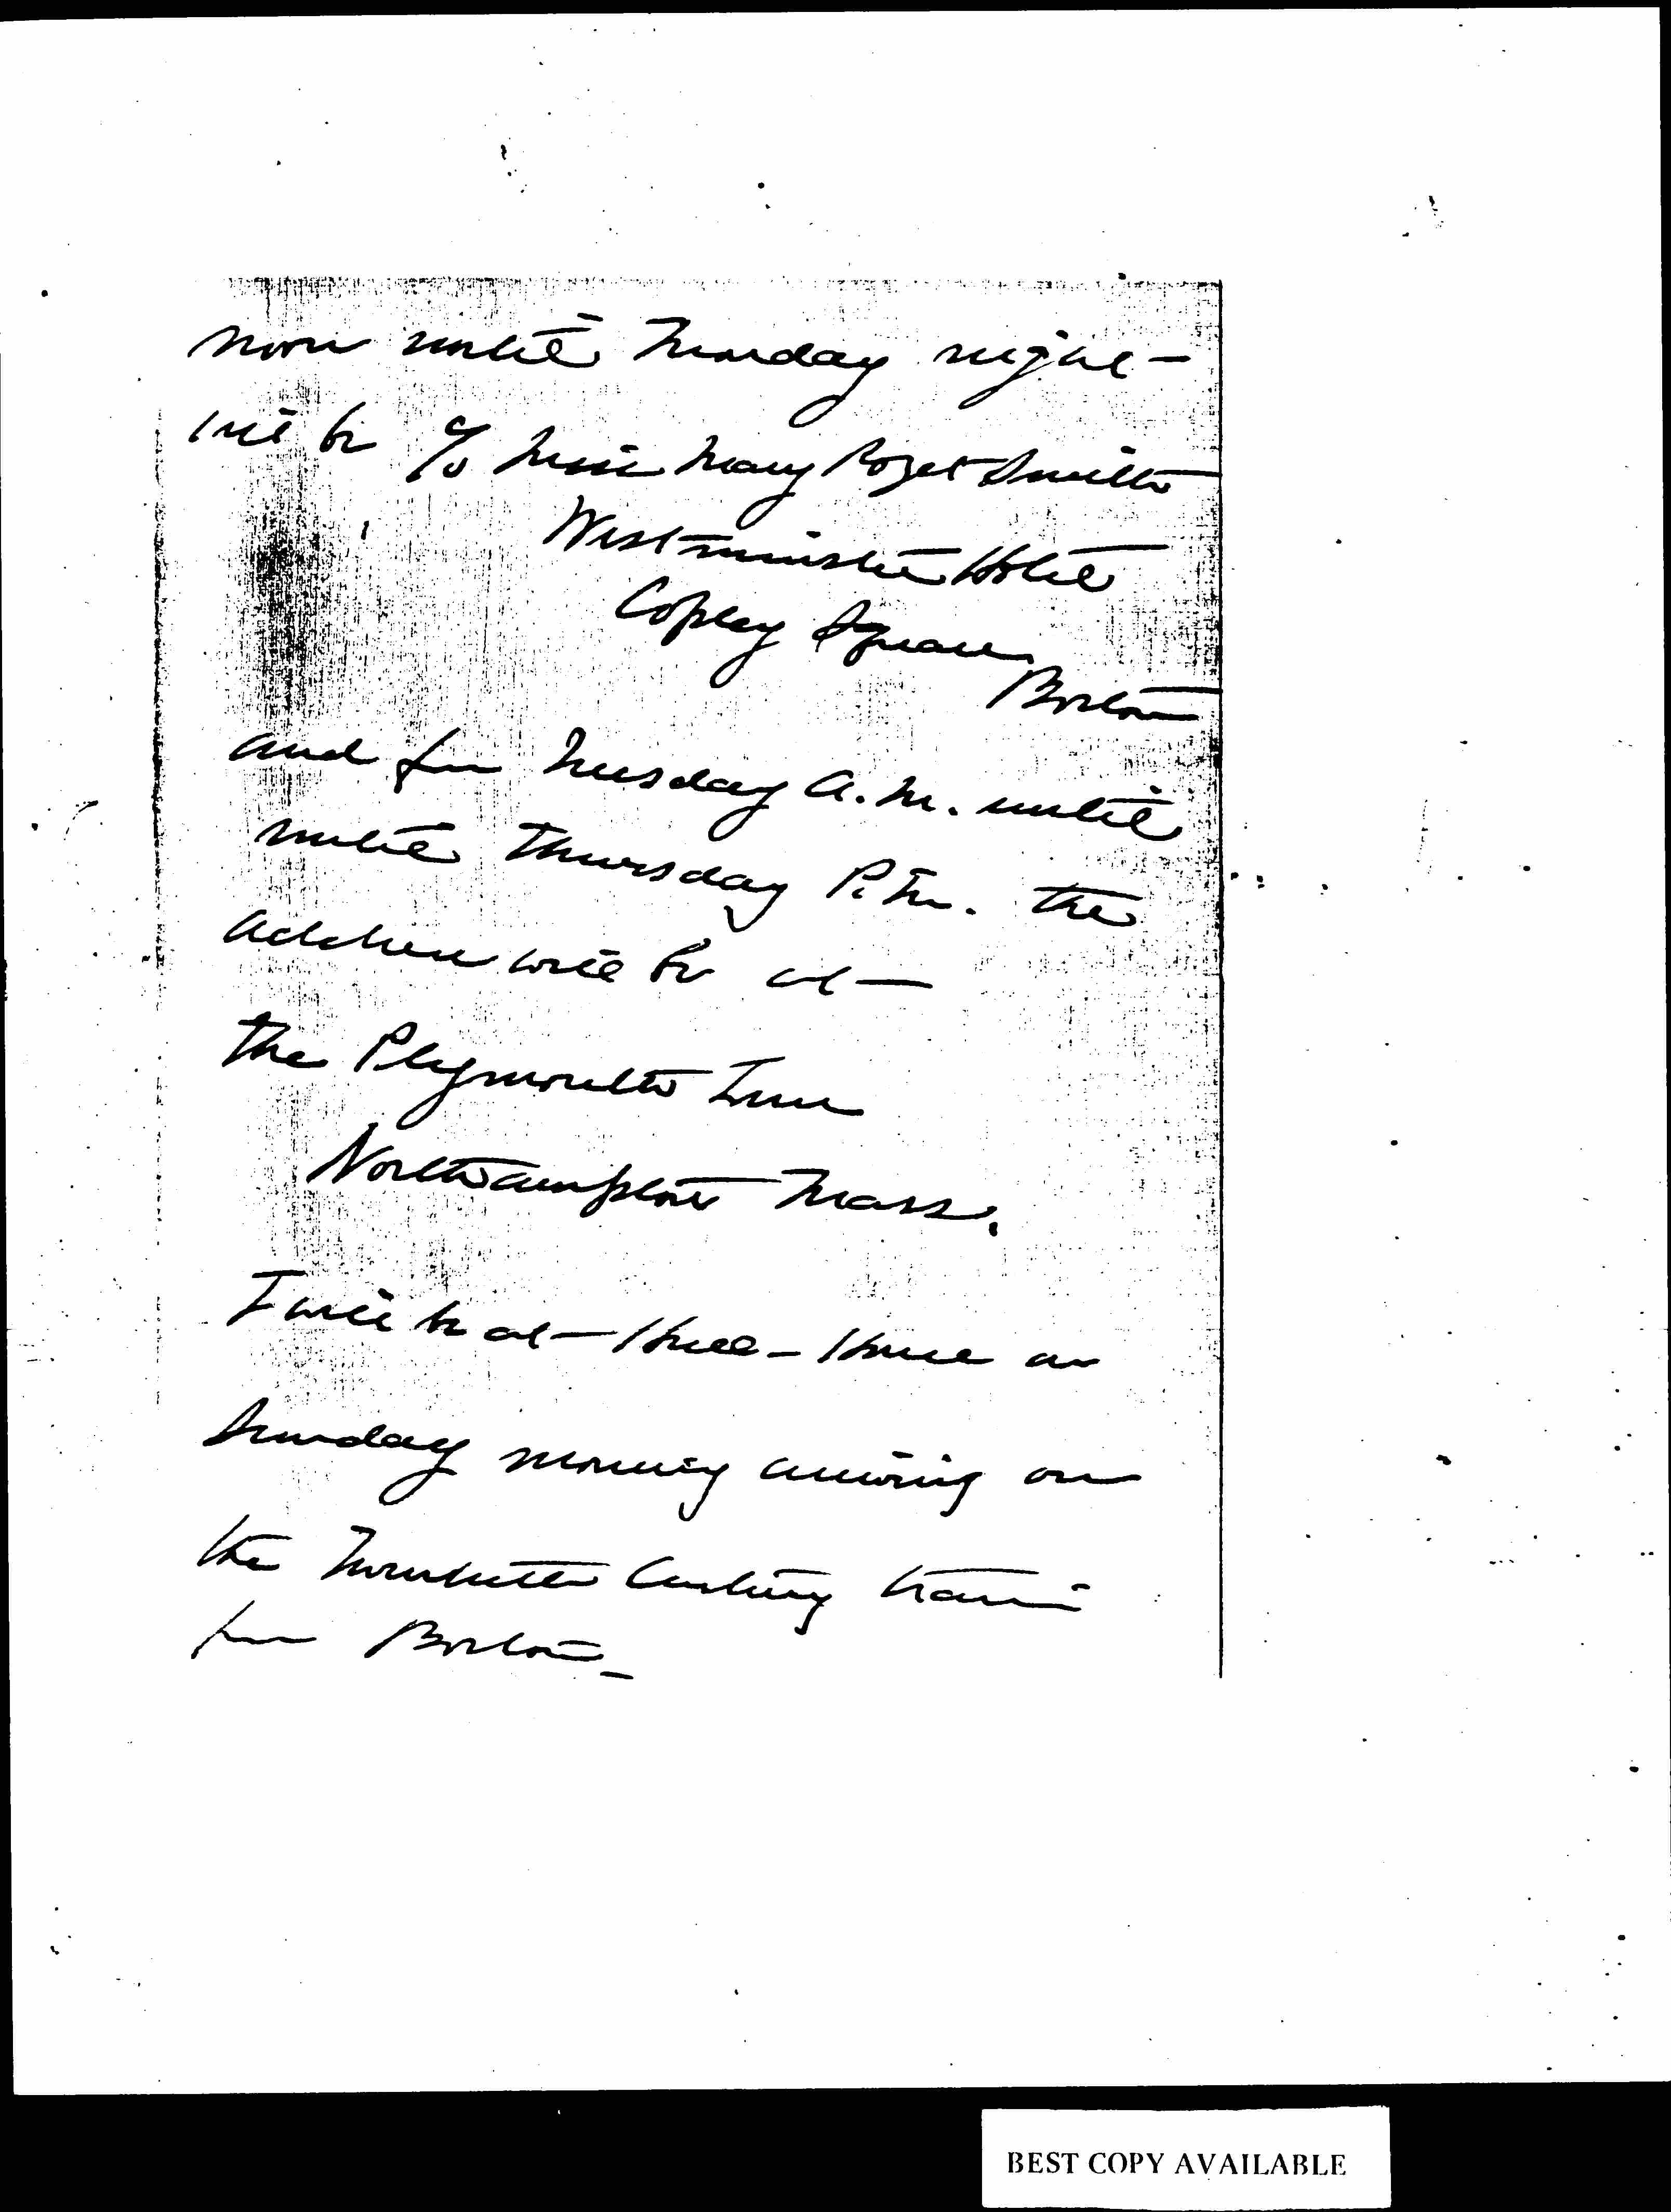 noon until Monday night
will be c/o Miss Mary Rozet Smith
Westminster Hotel
Copley Square
Boston
and from Tuesday A.M. until
until Thursday P.M. the
address will be at
the Plymouth Inn
Northampton Mass.
I will be at Hull-House on
Sunday morning arriving on
the Twentieth Century train
from Boston_
BEST COPY AVAILABLE